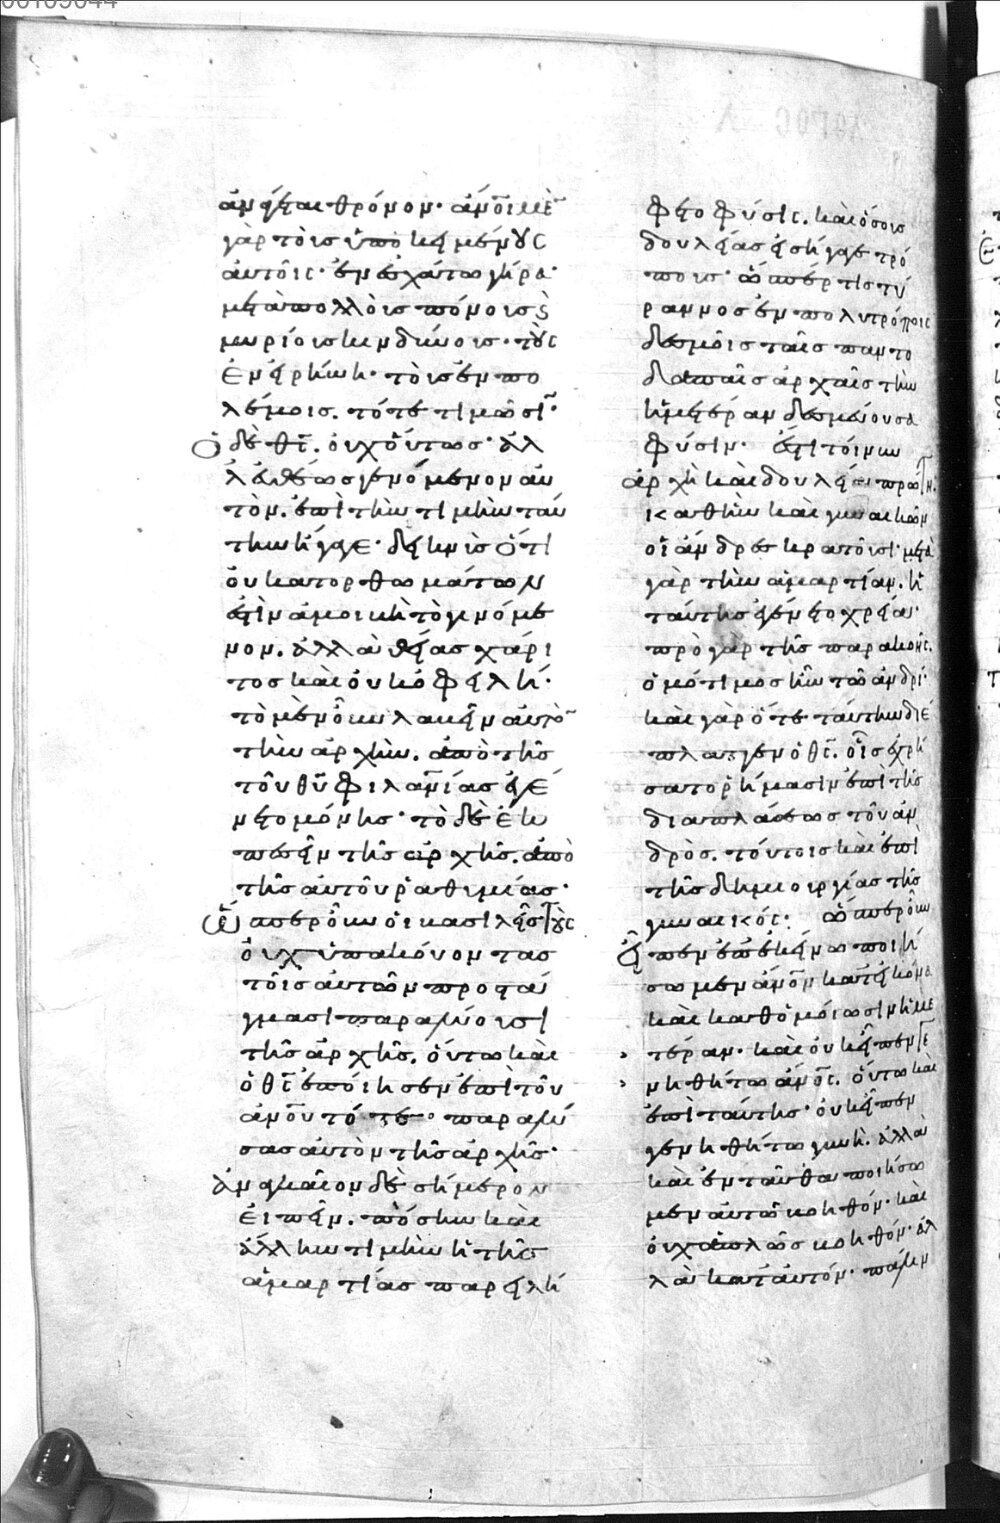 ἀνῆπται θρόνον· ἀν̅οι μὲ̅
γὰρ τοῖς ὑποκειμένους
αὐτοῖς· ἐν ἐσχάτω γήρα·
μετὰ πολλοῖς πόνοις ϗ
μυρίοις κινδύνοις· τοὺς
ἐνεγκὼν. τοῖς ἐν πο
λέμοις. τότε τιμῶσι̅·
ὁ δὲ θς̅. οὐχ οὕτως· ἀλ
λ' εὐθέως γενόμενον αὐ
τὸν. ἐπὶ τὴν τιμὴν ταύ
την ἤγαγε· δεικνὺς ὅτι
οὐ κατορθωμάτων
ἐστὶν ἀμοιβὴ τὸ γινόμε
νον. ἀλλὰ θείας χάρι
τος καὶ οὐκ ὀφειλή·
τὸ μὲν οὖν λαβεῖν αὐτὸ̅
τὴν ἀρχὴν. ἀπὸ τῆς
τοῦ θυ̅ φιλανίας ἐγέ
νετο μόνης· τὸ δὲ ἐκ
πεσεῖν τῆς ἀρχῆς. ἀπὸ
τῆς αὐτοῦ ῥαθυμίας·
ὥσπερ οὖν οἱ βασιλεῖς τοὺς
οὐχ ὑπακούοντας
τοῖς αὐτῶν προστά
γμασι παραλύουσι
τῆς ἀρχῆς. οὕτω καὶ
ὁ θς̅ ἐποίησεν ἐπὶ τοῦ
ἀνου̅ τότε· παραλύ
σας αὐτὸν τῆς ἀρχῆς·
ἀναγκαῖον δὲ σήμερον
εἰπεῖν. πόσην καὶ
ἄλλην τιμὴν ἡ τῆς
ἁμαρτίας παρείλε
το φύσις. καὶ ὅσους
δουλείας εἰσήγαγε τρό
πους· ὥσπερ τίς τύ
ραννος ἐν πολυτρόποις
δεσμοῖς ταῖς παντο
δαπαῖς ἀρχαῖς τὴν
ἡμετέραν δεσμεύουσα
φύσιν· ἔστι τοίνυν
ἀρχὴ καὶ δουλεία πρώτη.
καθ' ἣν καὶ γυναικῶν
οἱ ἄνδρες κρατοῦσι· μετὰ
γὰρ τὴν ἁμαρτίαν. ἡ
ταύτης ἐγένετο χρεία·
πρὸ γὰρ τῆς παρακοῆς.
ὁμότιμος ἦν τῶ ἀνδρί·
καὶ γὰρ ὅτε ταύτην διέ
πλαττεν ὁ θς̅. οἷς ἐχρή
σατο ῥήμασιν ἐπὶ τῆς
διαπλάσεως τοῦ ἀν
δρὸς. τούτοις καὶ ἐπὶ
τῆς δημιουργίας τῆς
γυναικός· ὥσπερ οὖν
εἶπεν ἐπ' ἐκείνω ποιή
σωμεν ἄνον̅ κατ' εἰκόνα
καὶ καθ' ὁμοίωσιν ἡμε
τέραν. καὶ οὐκ εἶπεν γε
νηθήτω ἄνος̅. οὕτω καὶ
ἐπὶ ταύτης· οὐκ εἶπεν
γενηθήτω γυνή. ἀλλὰ
καὶ ἐνταῦθα ποιήσω
μεν αὐτῶ βοηθόν· καὶ
οὐχ ἁπλῶς βοηθόν· ἀλ
λὰ κατ' αὐτόν· πάλιν